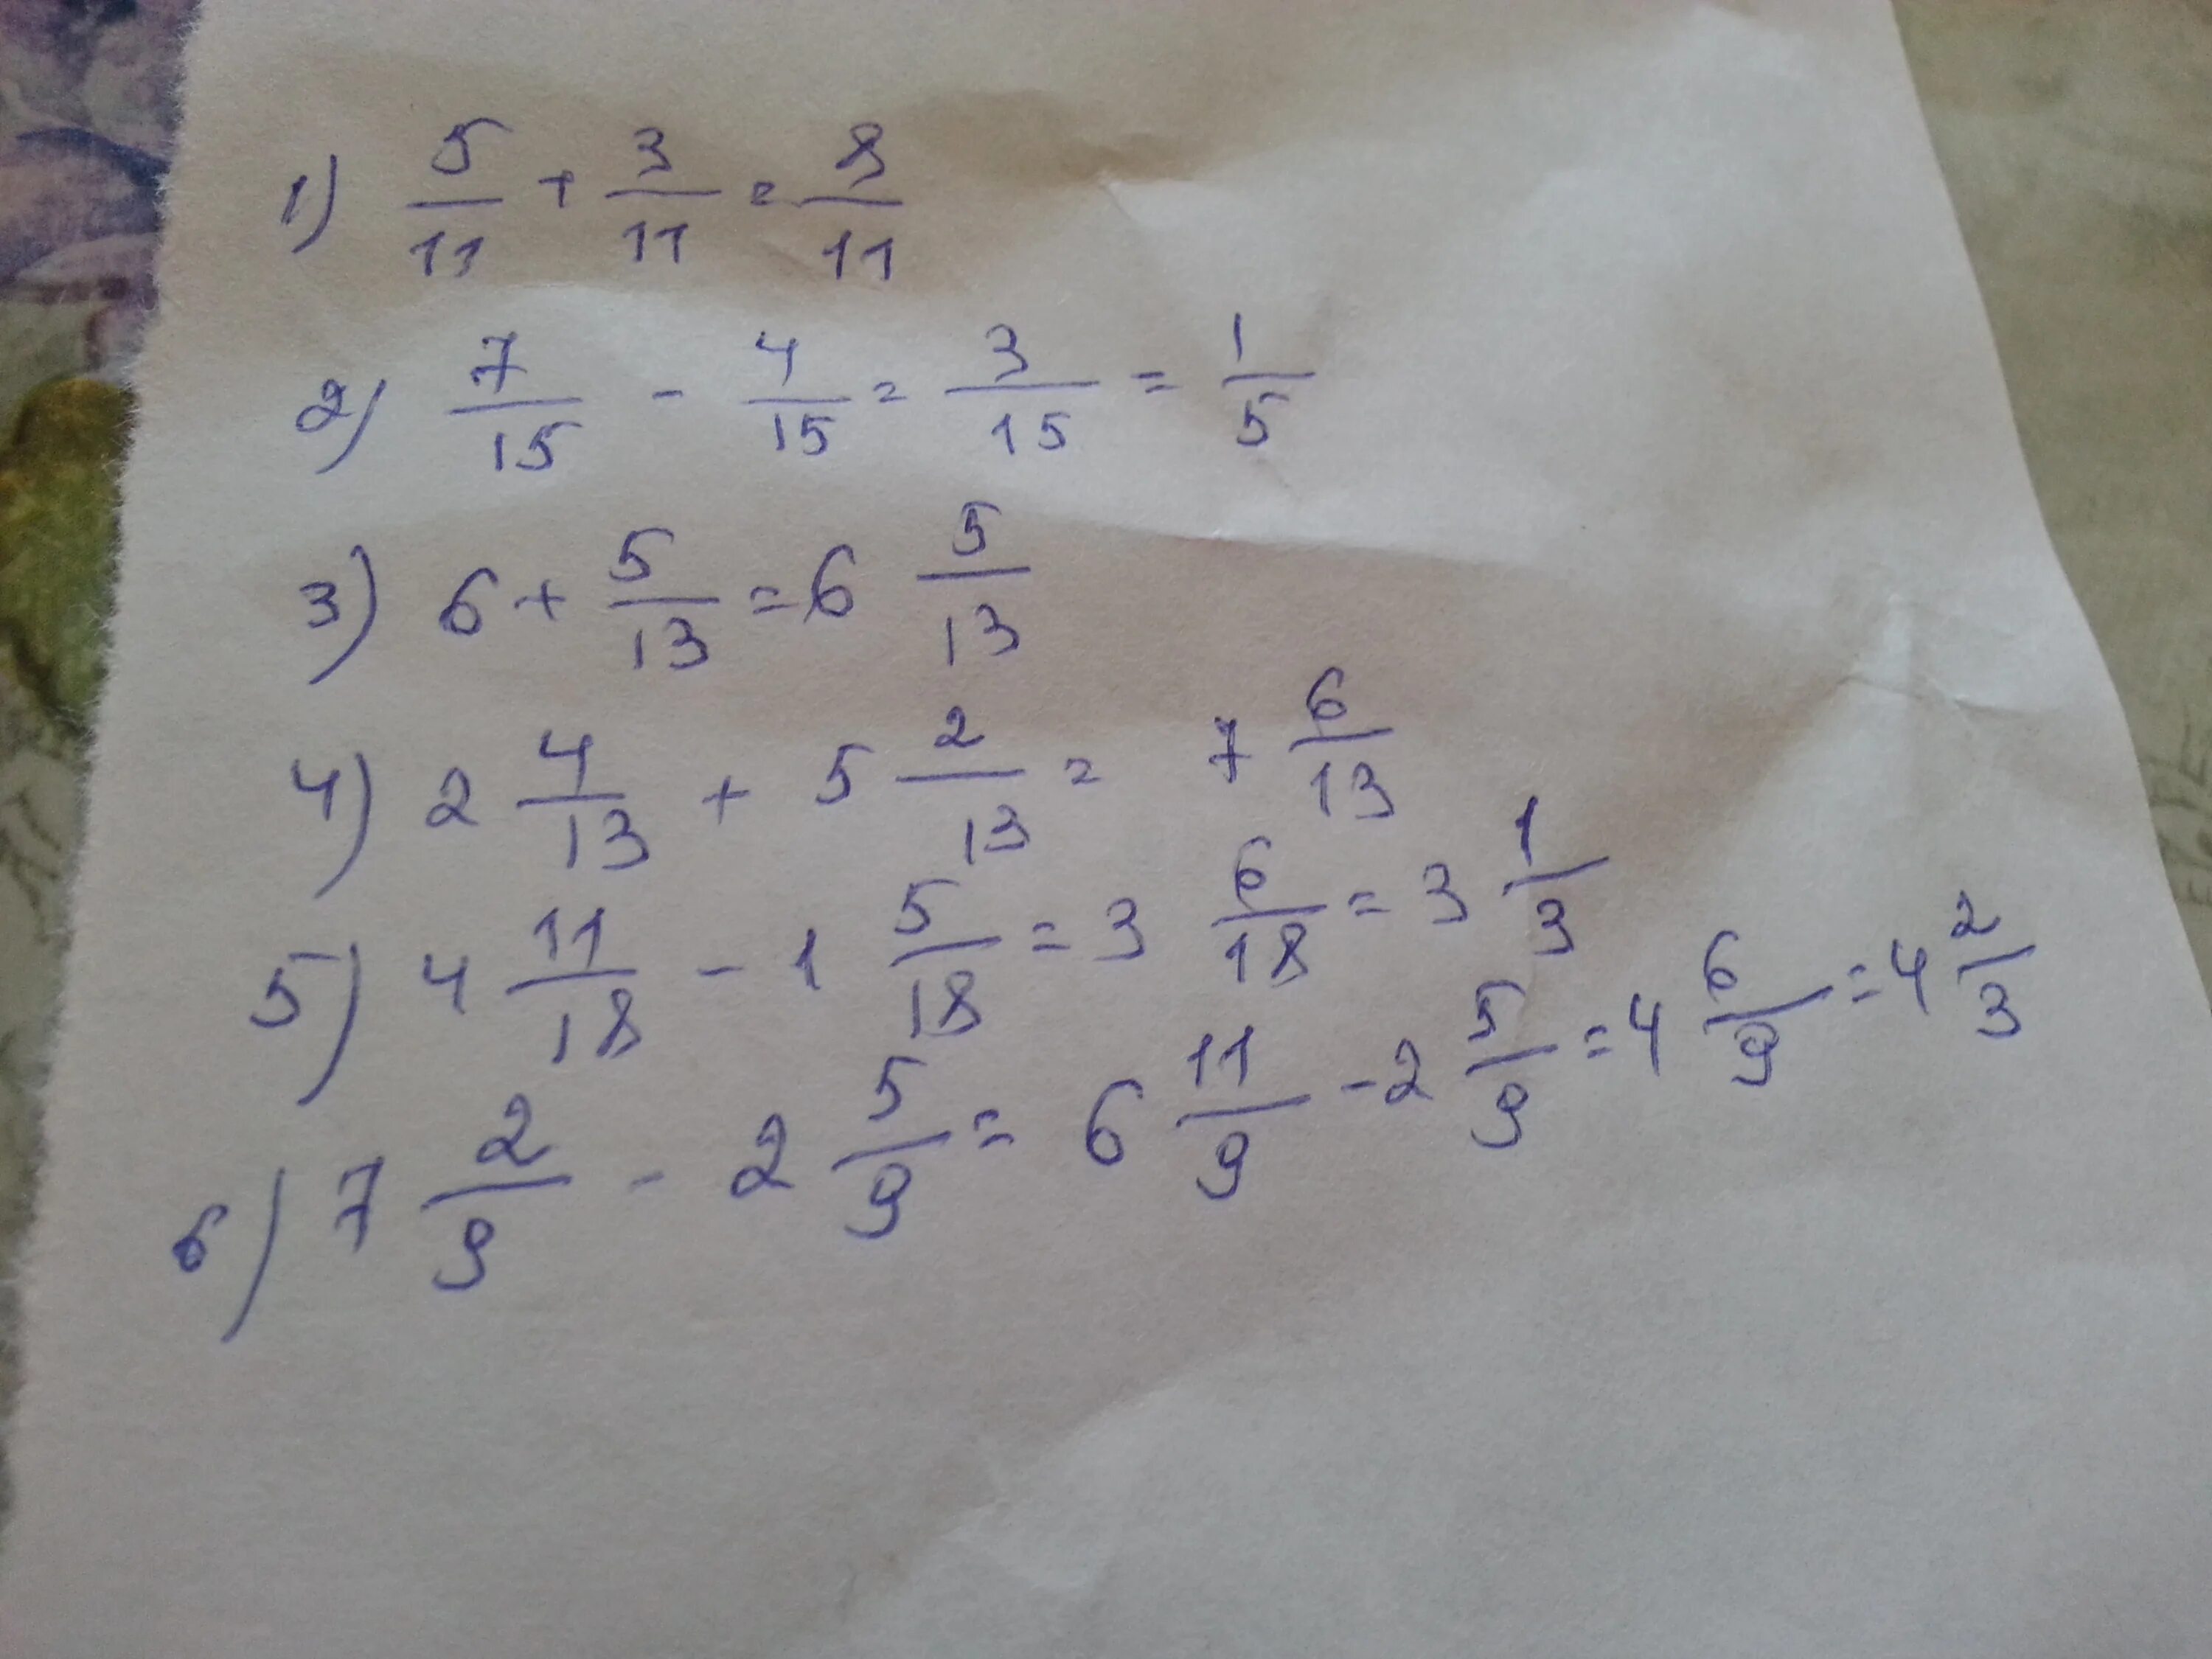 1) 5/11 + 3/11 = 8/11
2) 7/15 - 4/15 = 3/15 = 1/5
3) 6 + 5/13 = 6 5/13
4) 2 4/13 + 5 2/13 = 7 6/13
5) 4 11/18 - 1 5/18 = 3 6/18 = 3 1/3
6) 7 2/9 - 2 5/9 = 6 11/9 - 2 5/9 = 4 6/9 = 4 2/3